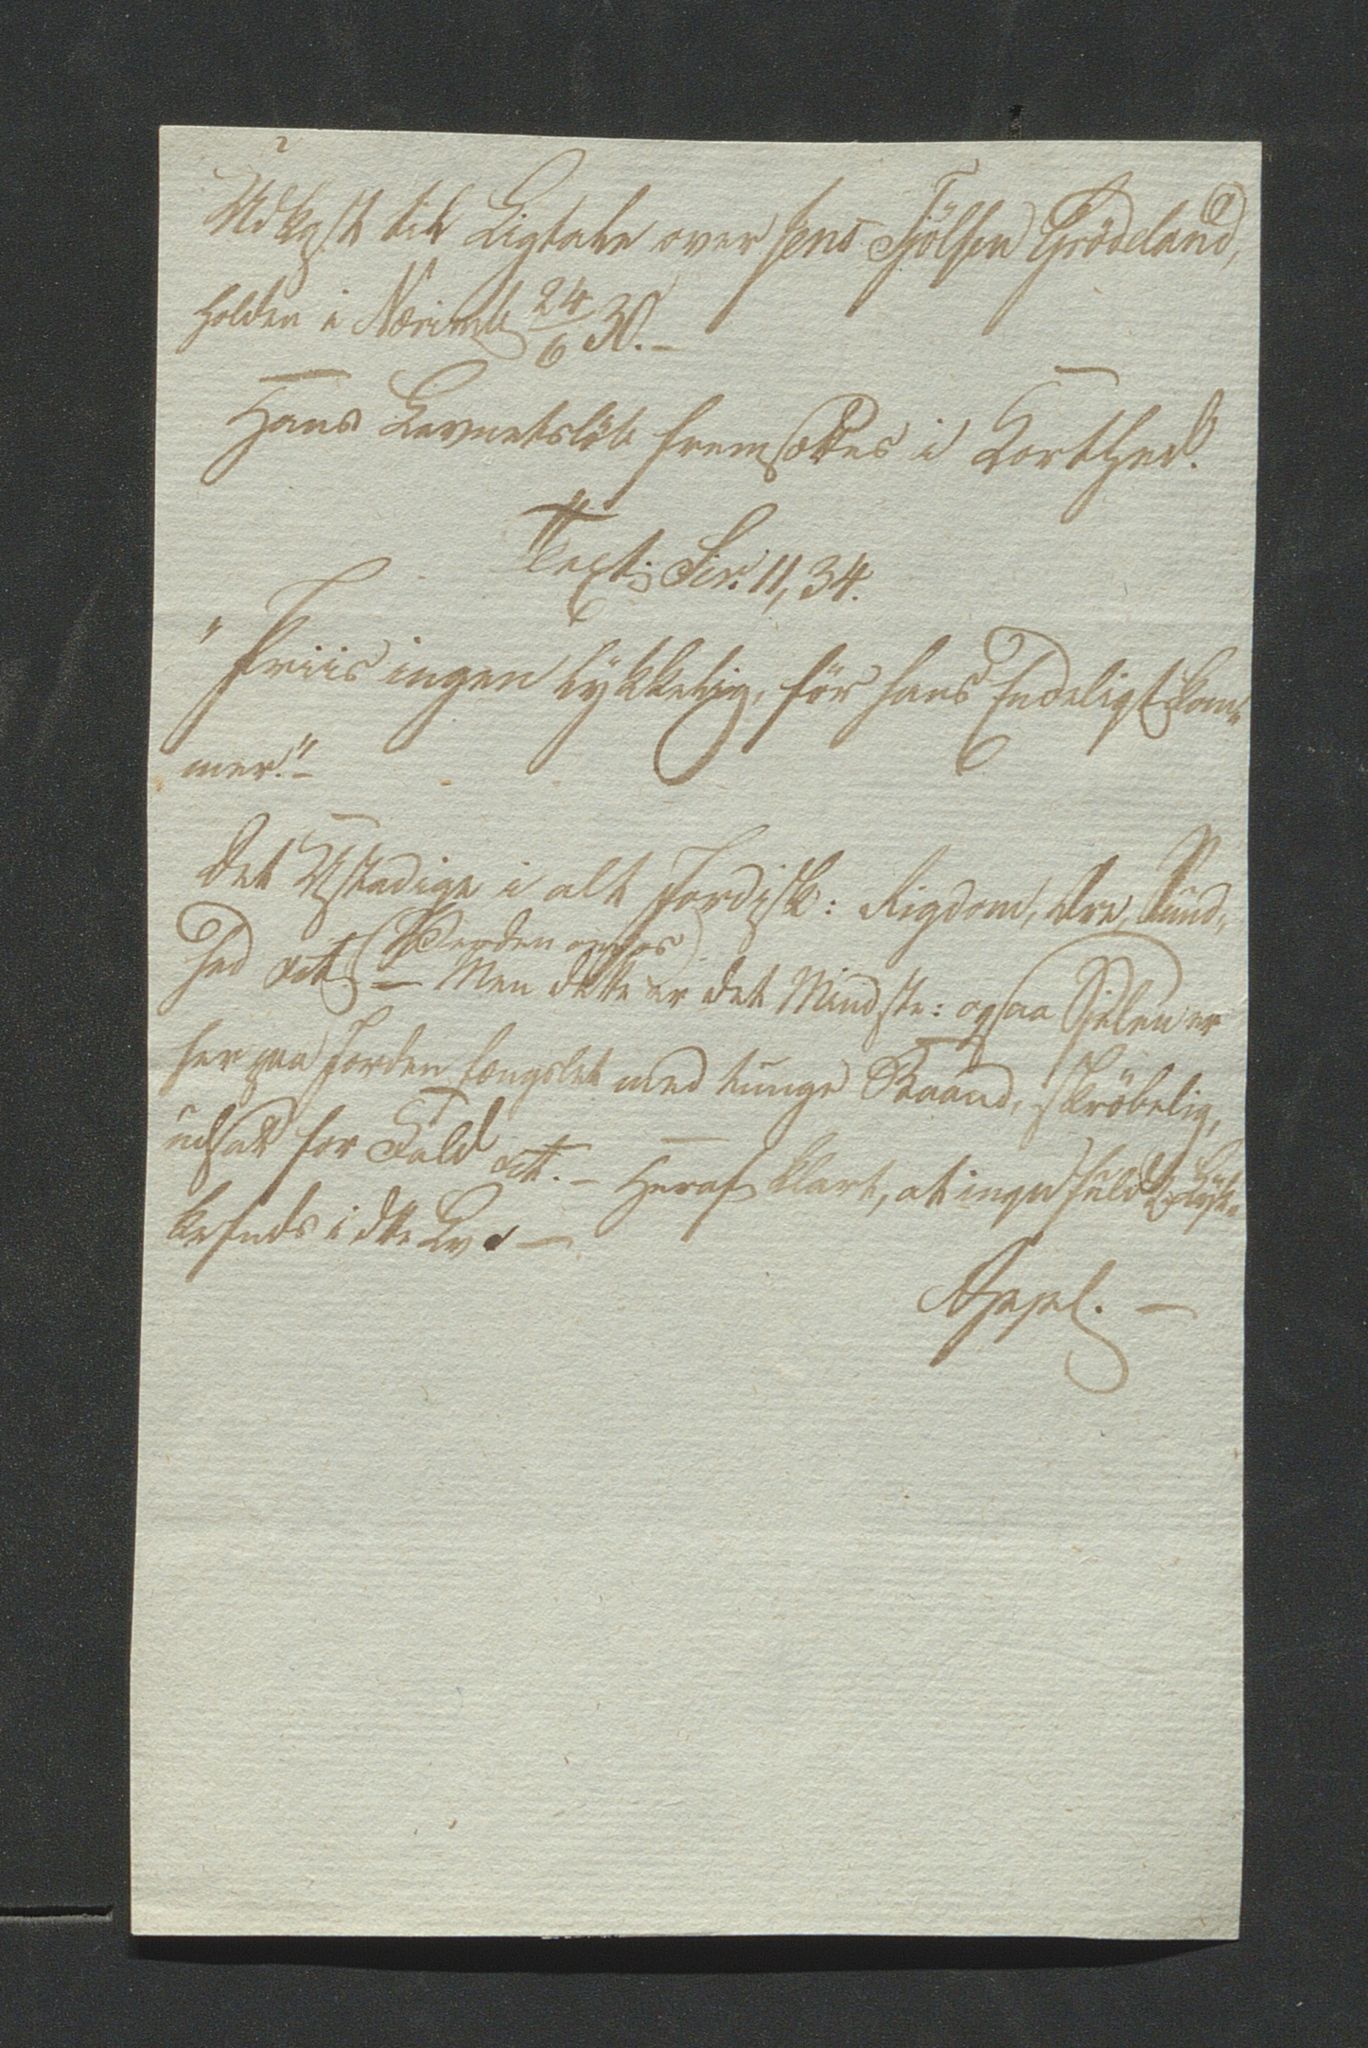 Udkast til Ligtale over Jens Tjölsen Grödeland,
holden i Nærimk 24/6 30.-
Hans Levnetslöb fremsættes i Korthed.
Text: Sir. 11, 34.
"Priis ingen lykkelig, för hans Endeligt kom-
mer."-
Det Ustadige i alt Jordisk: Rigdom, Ære, Sund-
(Verden opgos)
hed ect - Men dette er det Mindste: ogsaa Sjelen er
her paa Jorden fængslet med tunge Baand, skröbelig,
udsatt for Fald ett. - Heraf klart, at ingen fuld Lyk-
ke finds i dtte Lv. -
Appl. -